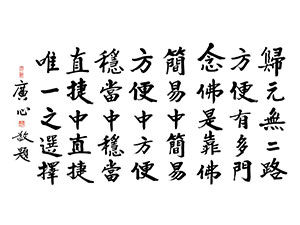 歸元無二路
方便有多門
念佛是靠佛
簡易中簡易
方便中方便
穩當中穩當
直捷中直捷
唯一之選擇
廣心敬題